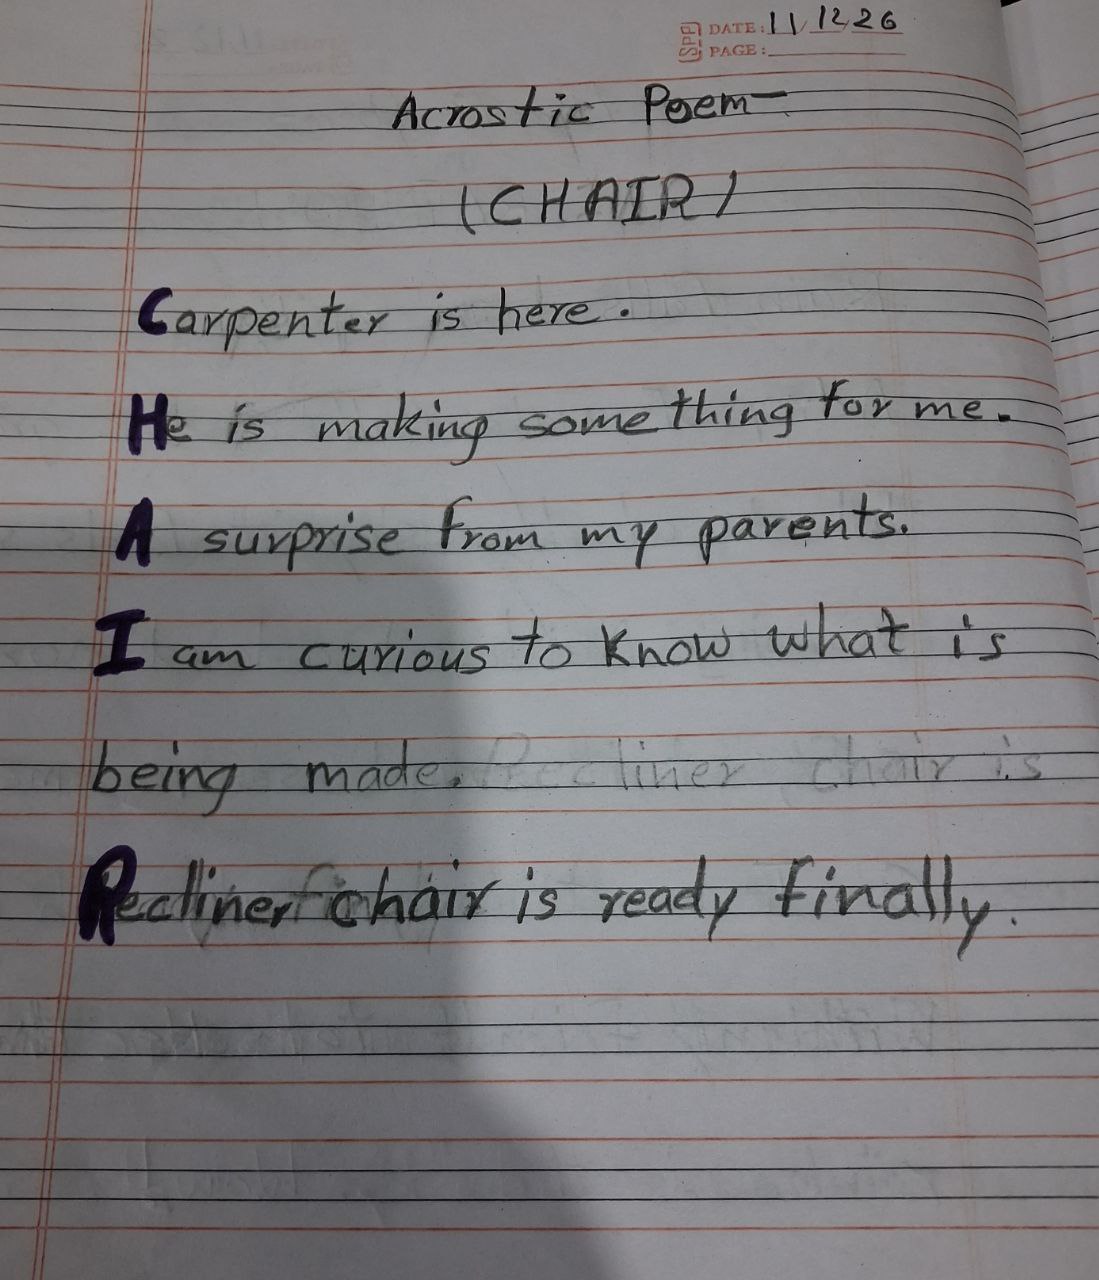 SPP DATE: 11/12/26
PAGE:
Acrostic Poem-
(CHAIR)
Carpenter is here.
He is making something for me.
A surprise from my parents.
I am curious to know what is
being made. Recliner chair is
Recliner chair is ready finally.